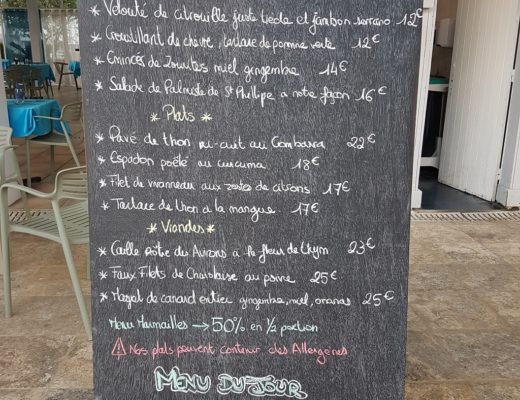 * Velouté de citrouille juste tiède et jambon serrano 12€
* Croustillant de chèvre, tartare de pomme verte 12€
* Emincés de Zourites miel gingembre 14€
* Salade de Palmiste de St Philippe à notre façon 16€
* Plats *
* Pavé de thon mi-cuit au Combava 22€
* Espadon poêlé au curcuma 18€
* Filet de vivanneau aux zestes de citrons 17€
* Tartare de thon à la mangue 17€
* Viandes *
* Caille rôtie des Avirons à la fleur de thym 23€
* Faux Filets de Charolaise au poivre 25€
* Magret de canard entier gingembre, miel, ananas 25€
Menu Marmailles → 50% en 1/2 portion
⚠ Nos plats peuvent contenir des Allergènes
MENU DU JOUR